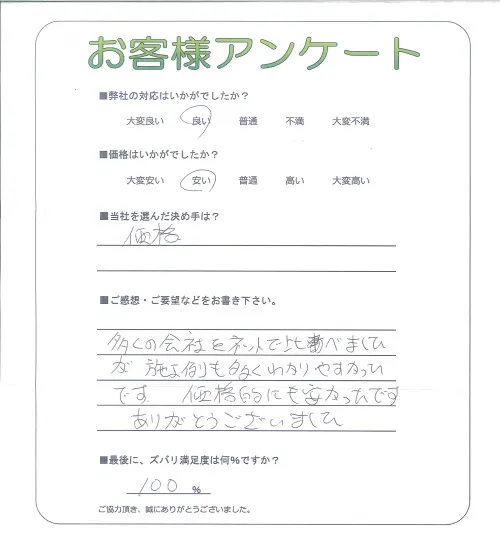 お客様アンケート
■弊社の対応はいかがでしたか？
大変良い 良い 普通 不満 大変不満
■価格はいかがでしたか？
大変安い 安い 普通 高い 大変高い
■当社を選んだ決め手は？
価格
■ご感想・ご要望などをお書き下さい。
多くの会社をネットで比べました
が 施工例も多くわかりやすかった
です 価格的にも安かったです
ありがとうございました
■最後に、ズバリ満足度は何%ですか？
100 %
ご協力頂き、誠にありがとうございました。